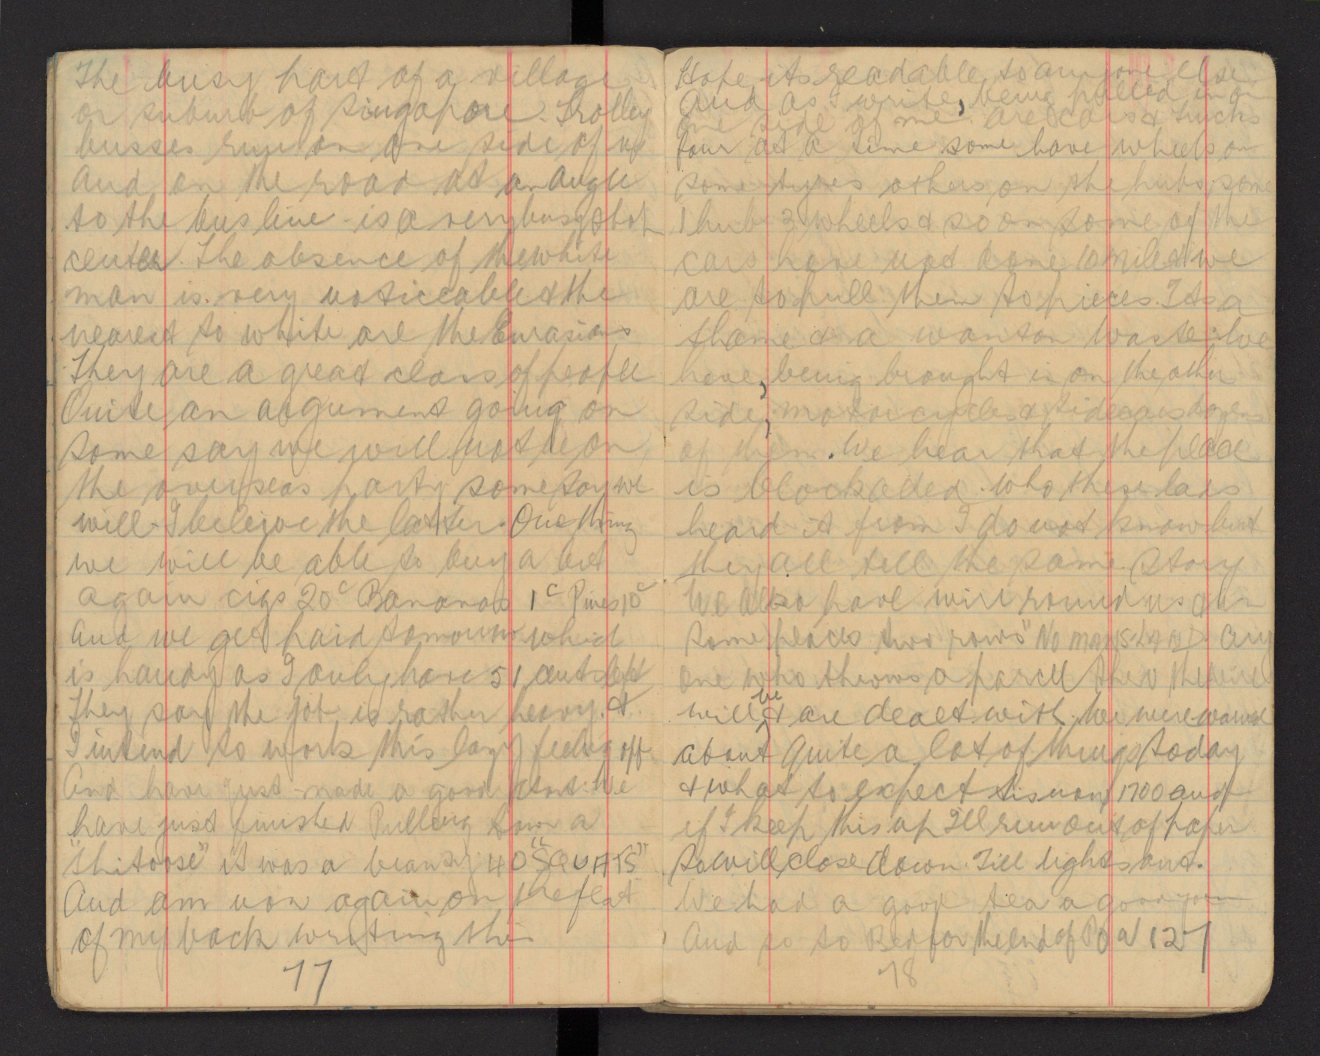 The busy part of a village
or suburb of Singapore. Trolley
busses run on one side of us
And on the road at an angle
to the bus line is a very busy shop
center. The absence of the white
man is very noticeable & the
nearest to white are the Eurasians
They are a great class of people
Quite an argument going on
some say we will not be on
the overseas party some say we
will I beleive the latter. One thing
we will be able to buy a bit
again cigs 20c Bananas 1c Pines 10c
And we get paid tomorrow which
is handy as I only have 51 cents left
They say the job is rather heavy. &
I intend to work this lazy feeling off
And have just made a good start. We
have just finished Pulling down a
"Shitoose" it was a beauty 40 "SQUATS"
And am now again on the flat
of my back writing this
77
Hope its readable to anyone else
And as I write, being pulled in on
one side of me are cars & trucks
four at a time some have wheels on
some tyres others on the hubs, some
1 hub 3 wheels & so on some of the
cars have not done 10 miles & we
are to pull them to pieces. Its a
shame & a wanton waste. We
have, being brought in on the other
side, motor cycles & sidecars dozens
of them. We hear that the place
is blockaded. who these lads
heard it from I do not know but
they all tell the same story
We also have wire round us & in
some places two rows "No mans land" Any
one who throws a parcel thro the wire
will be & are dealt with. We were warned
about quite a lot of things today
& what to expect tis now 1700 and
if I keep this up Ill run out of paper
so will close down Till lights out.
We had a good tea a good
And so to Bed for the end of POW 127
78